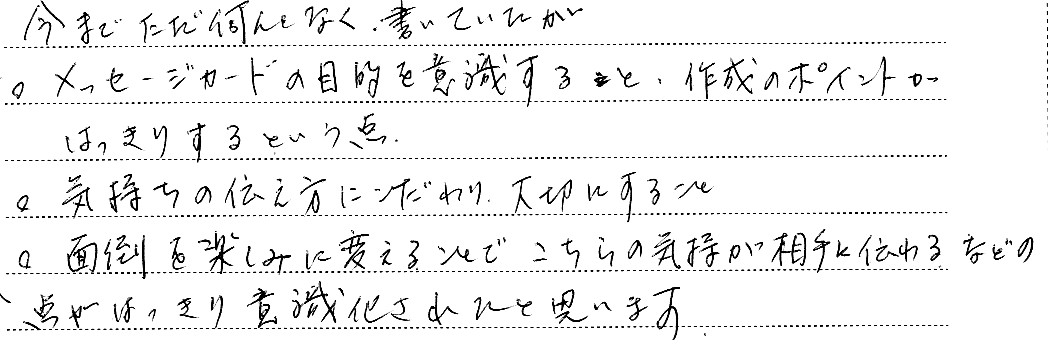 今までただ何んとなく、書いていたが
。メッセージカードの目的を意識すること、作成のポイントが
はっきりするという点.
。気持ちの伝え方にこだわり、大切にすること
。面倒を楽しみに変えることでこちらの気持が相手に伝わるなどの
点がはっきり意識化されたと思います